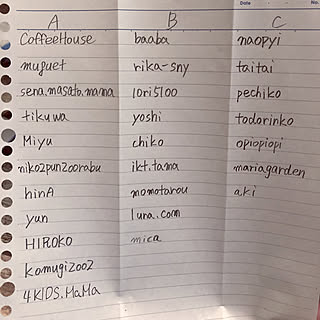 Date No.
A B C
CoffeeHouse baaba naopyi
muguet rika-sny taitai
sena.masato.mama lori5100 pechiko
tikuwa yoshi todorinko
Miyu chiko opiopiopi
niko2punzoorabu ikt.tama mariagarden
hinA momotarou aki
yun luna.com
HIROKO mica
komugi2002
4KIDS.MaMa